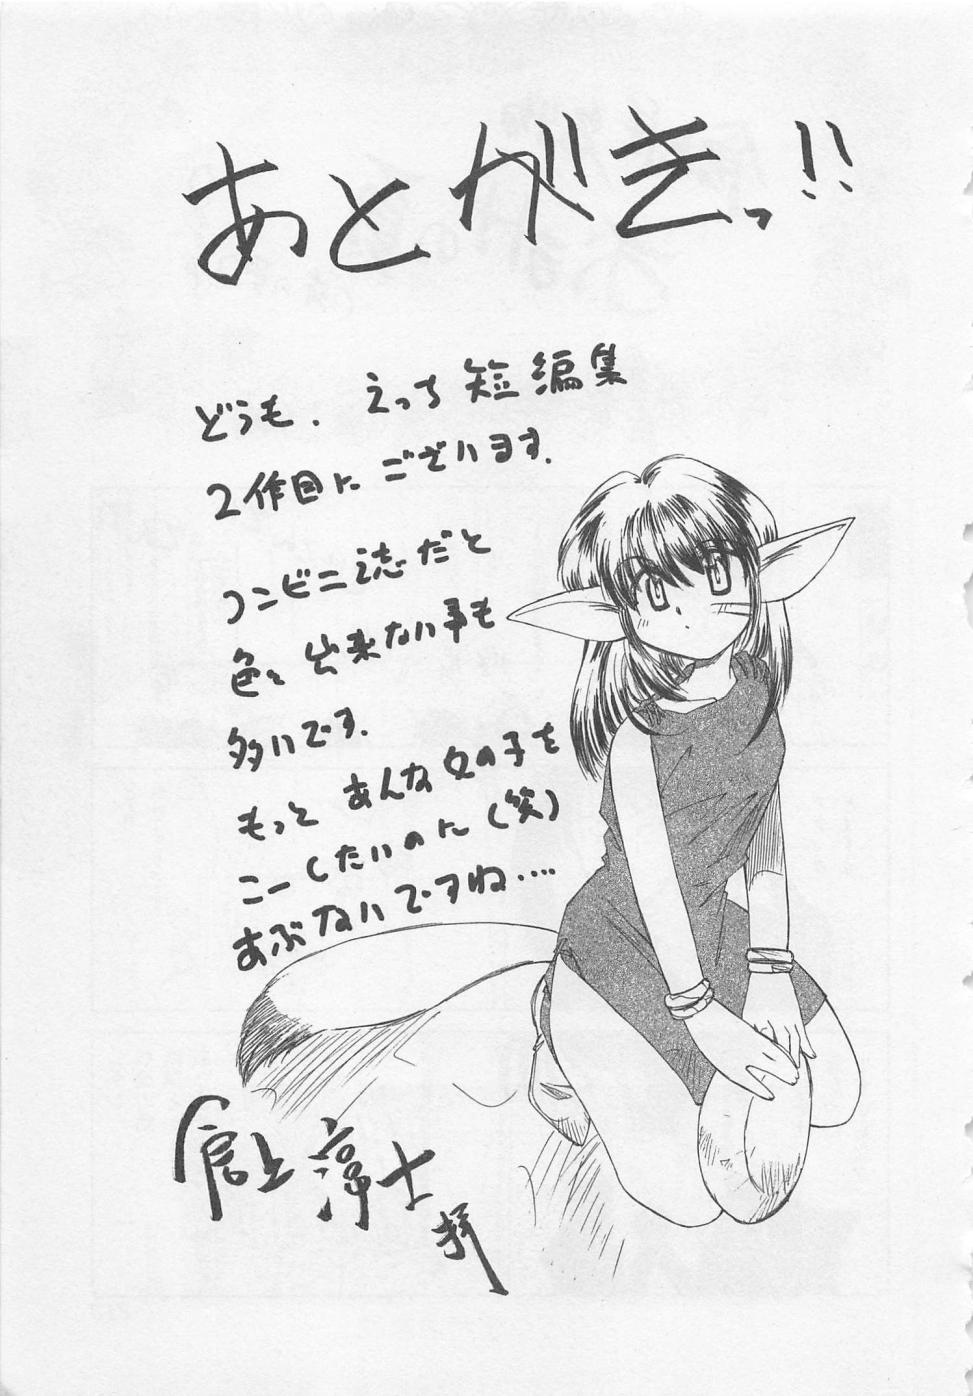 あとがきっ!!
どうも. えっち短編集
2作目にございます.
コンビニ誌だと
色々出来ない事も
多いです.
もっとあんな女の子を
こーしたいのに(笑)
あぶないですね....
上淳士
拝